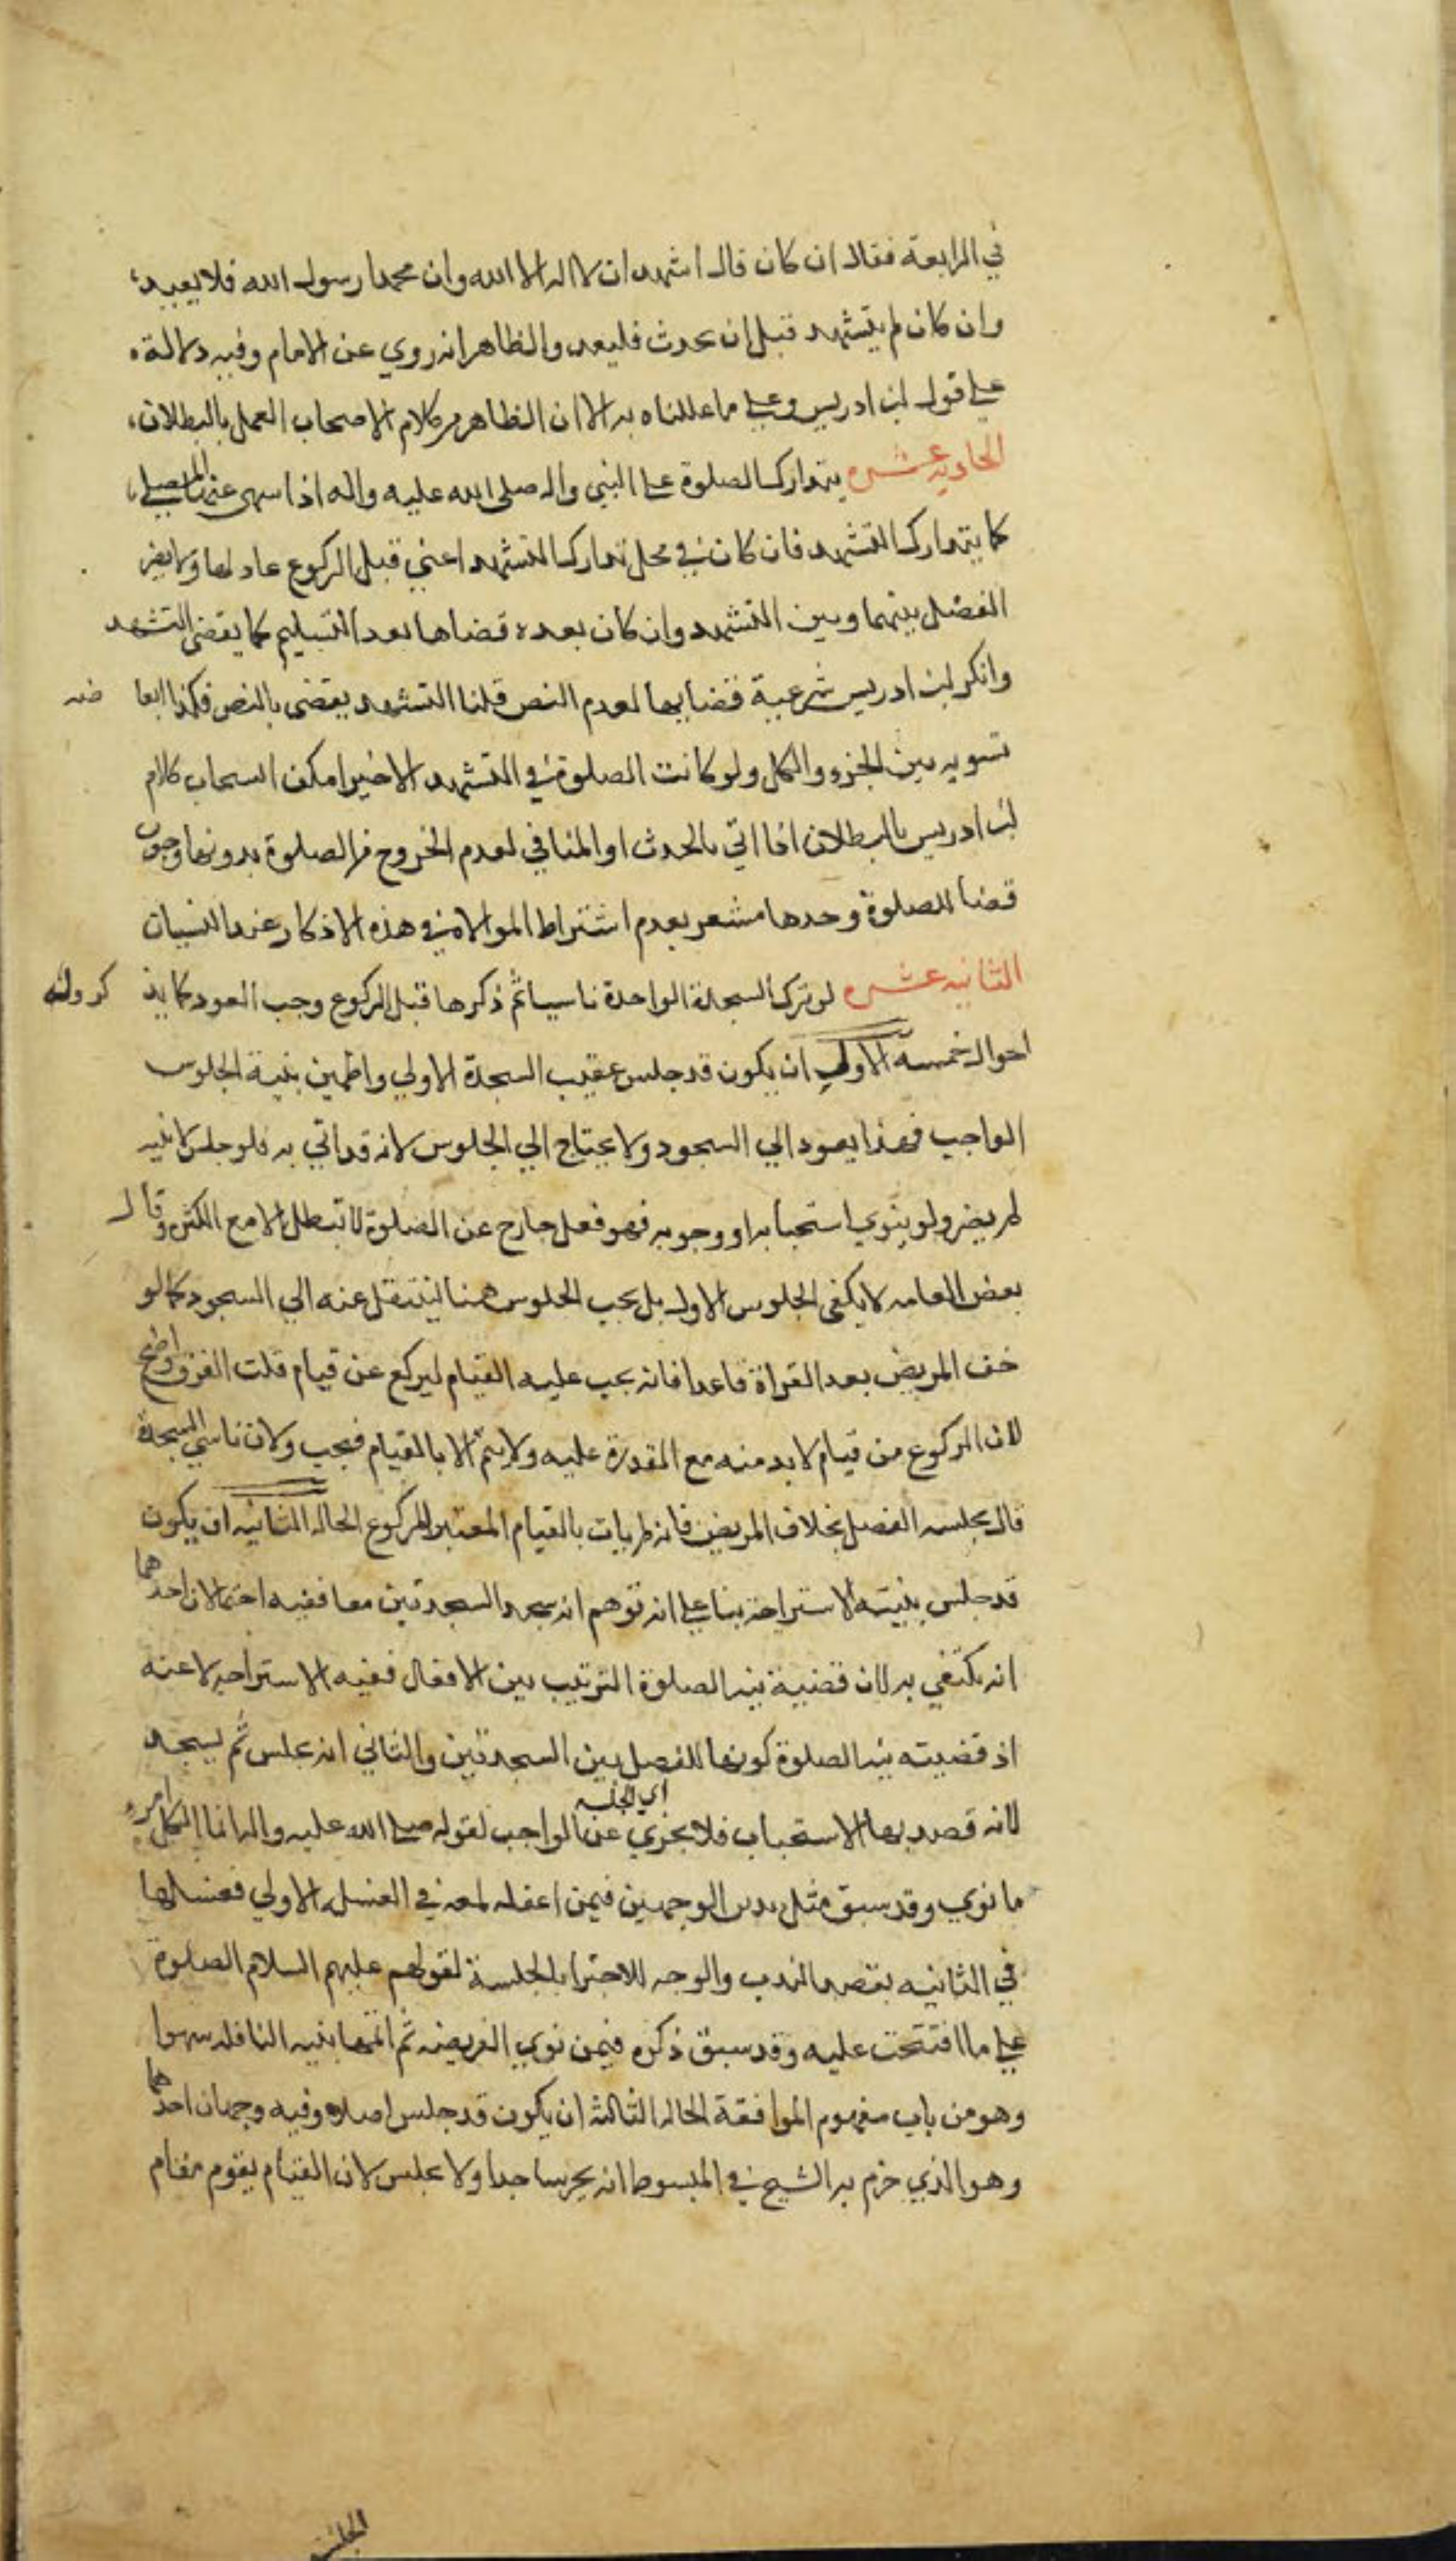 في الرابعة فقال ان كان قال اشهد ان لا اله الا الله وان محمدا رسول الله فلا يعيد،
وان كان لم يتشهد قبل ان يحدث فليعد والظاهر انه روي عن الامام وفيه دلالة
علي قول ابن ادريس وعلي ما عللناه به الا ان الظاهر من كلام الاصحاب العمل بالبطلان،
الحادية عشره يتدارك الصلوة علي النبي واله صلي الله عليه واله اذا سهي عنها المصلي
كما يتدارك التشهد فان كان في محل تدارك التشهد اعني قبل الركوع عاد لها ولا يضر
الفصل بينهما وبين التشهد وان كان بعده قضاها بعد التسليم كما يقضي التشهد
وانكر ابن ادريس شرعية قضايها لعدم النص قلنا التشهد يقضي بالنص فكذا ابعا ضه
تسويه بين الجزء والكل ولو كانت الصلوة في التشهد الاخير امكن انسحاب كلام
ابن ادريس بالبطلان اذا اتي بالحدث او المنافي لعدم الخروج من الصلوة بدونها ووجوب
قضا الصلوة وحدها مشعر بعدم اشتراط الموالاة في هذه الاذكار عند النسيان
الثانيه عشره لو ترك السجدة الواحدة ناسيا ثم ذكرها قبل الركوع وجب العود كما يذ كر وله
احوال خمسة الاولي ان يكون قد جلس عقيب السجدة الاولي واطمين بنية الجلوس
الواجب فهذا يعود الي السجود ولا يحتاج الي الجلوس لانه قد اتي به فلو جلس لا بنيه
لم يضر ولو بنوي استحبابه او وجوبه فهو فعل خارج عن الصلوة لا تبطل الا مع الكثره وقال
بعض العامه لا يكفي الجلوس الاول بل يجب الجلوس هنا لينتقل عنه الي السجود كما لو
خف المريض بعد القراة قاعدا فانه يجب عليه القيام ليركع عن قيام قلت الفرق واضح
لان الركوع من قيام لا بد منه مع القدرة عليه ولا يتم الا بالقيام فيجب ولان ناسي السجدة
قال بجلسه الفصل بخلاف المريض فانه لم يات بالقيام المعتبر للركوع الحاله الثانيه ان يكون
قد جلس بنيته الاستراحة بنا علي انه توهم انه سجد السجدتين معا ففيه احتمالان احدهما
انه يكتفي به لان قضية نيه الصلوة الترتيب بين الافعال ففيه الاستراحه لاغيه
اذ قضيته نيه الصلوة كونها للفصل بين السجدتين والثاني انه يجلس ثم يسجد
لانه قصد بها الاستحباب فلا يجزي اي الجلسه عن الواجب لقوله صلي الله عليه واله انما لكل امرء
ما نوي وقد سبق مثل هذين الوجهين فيمن اغفل لمعه في الغسله الاولي فغسلها
في الثانيه بقصد الندب والوجه الاجتزا بالجلسة لقولهم عليهم السلام الصلوة
علي ما افتتحت عليه وقد سبق ذكره فيمن نوي الفريضه ثم اتمها بنيه النافله سهوا
وهو من باب مفهوم الموافقة الحاله الثالثه ان يكون قد جلس اصلا وفيه وجهان احدهما
وهو الذي جزم به الشيخ في المبسوط انه يخر ساجدا ولا يجلس لان القيام يقوم مقام
الجلسة